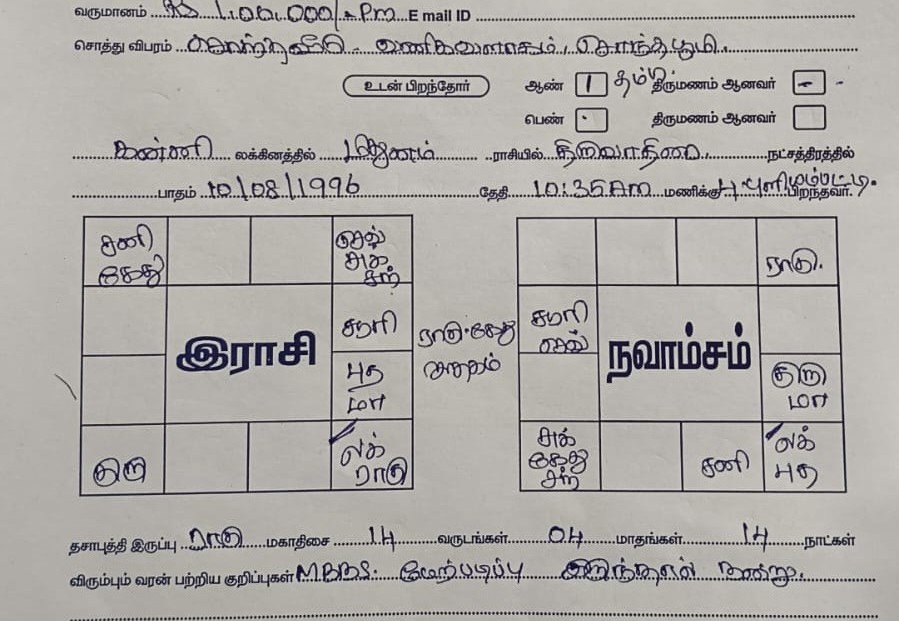 வருமானம் ரூ 1,00,000/- Pm E mail ID
சொத்து விபரம் சொந்தவீடு - வணிகவளாகம், சொந்தபூமி.
உடன் பிறந்தோர் ஆண் 1 தம்பி திருமணம் ஆனவர் - -
பெண் . திருமணம் ஆனவர்
கன்னி லக்கினத்தில் மிதுனம் ராசியில் திருவாதிரை நட்சத்திரத்தில்
பாதம் 10/08/1996 தேதி 10:35 Am மணிக்கு புளியம்பட்டி. பிறந்தவர்.
சனி கேது
செவ் சுக் சந்
சூரி
புத மா
லக் ராகு
குரு
இராசி
ராகு கேது
ராகு.
சூரி செவ்
குரு மா
சுக் கேது சந்
சனி
லக் புத
நவாம்சம்
தசாபுத்தி இருப்பு ராகு மகாதிசை 14 வருடங்கள் 04 மாதங்கள் 14 நாட்கள்
விரும்பும் வரன் பற்றிய குறிப்புகள் M.B.B.S. மேற்படிப்பு இருந்தால் நன்று.